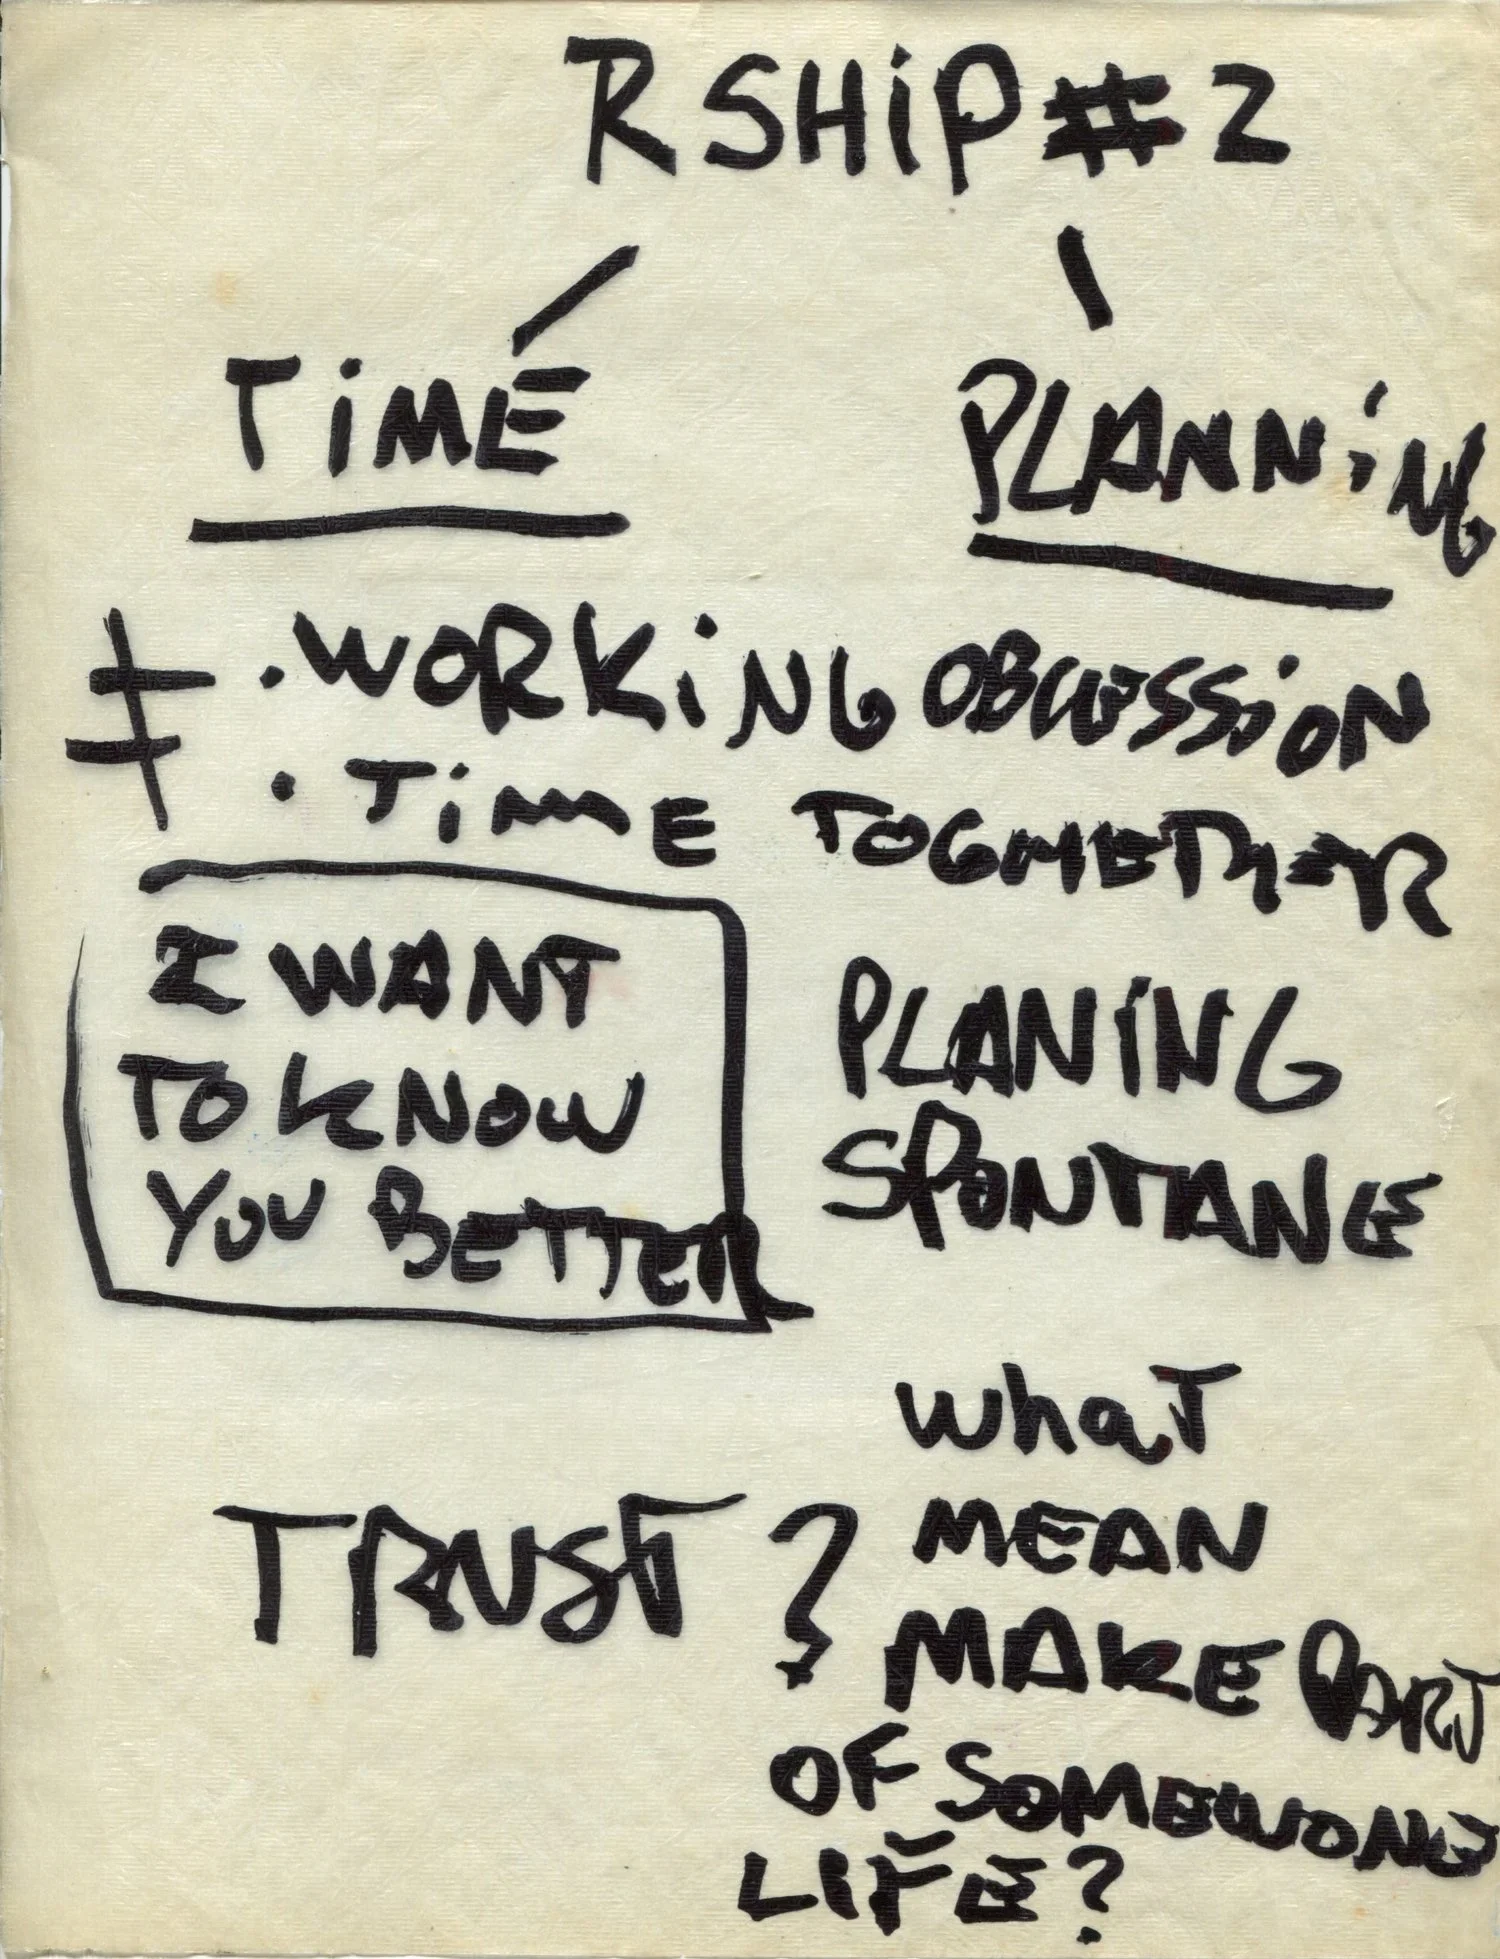 RSHiP #2
TiME
PLANNiNG
≠ .WORKiNG OBCESSiON
. TiME TOGHETHER
I WANT
TO KNOW
YOU BETTER
PLANiNG
SPONTANE
TRUST ?
whaT
MEAN
MAKE PART
OF SOMEWONE
LIFE?